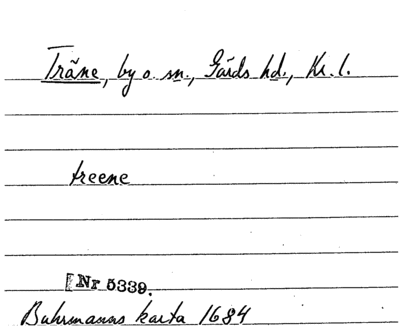 Träne, by o. sn., Gärds hd., Kr. l.
treene
[Nr 5339.
Buhrmanns karta 1684